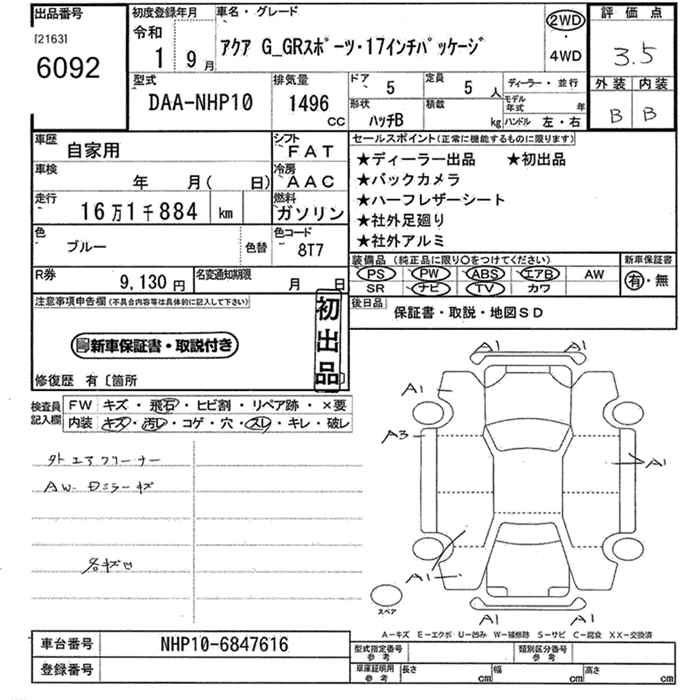 出品番号
[2163]
6092
初度登録年月
令和
1 9月
車名・グレード
アクア G_GRスポーツ・17インチパッケージ
2WD
・
4WD
評価点
3.5
外装 内装
B B
型式
DAA-NHP10
排気量
1496
CC
ドア
5
定員
5 人
形状
ハッチB
積載
kg
ディーラー・並行
モデル年式 年
ハンドル 左・右
車歴
自家用
シフト
FAT
車検
年 月( 日)
冷房
AAC
走行
16万1千884 km
燃料
ガソリン
色
ブルー
色替
色コード
8T7
R券
9,130円
名変通知期限
月 日
セールスポイント(正常に機能するものに限ります)
★ディーラー出品 ★初出品
★バックカメラ
★ハーフレザーシート
★社外足廻り
★社外アルミ
装備品 (純正品に限り○をつけてください)
PS PW ABS エアB AW
SR ナビ TV カワ
新車保証書
有・無
後日品
保証書・取説・地図SD
注意事項申告欄(不具合内容等は具体的に記入して下さい)
新車保証書・取説付き
初出品
修復歴 有〔箇所
検査員
記入欄
FW キズ・飛石・ヒビ割・リペア跡・×要
内装 キズ・汚レ・コゲ・穴・スレ・キレ・破レ
外エアクリーナー
AW
A1 A1
A1
A3
A1
A1
A1 A1
スペア
A―キズ E―エクボ U―凹み W―補修跡 S―サビ C―腐食 XX―交換済
車台番号
NHP10-6847616
登録番号
型式指定番号
参考
類別区分番号
参考
車庫証明用
参考
長さ cm
幅 cm
高さ cm